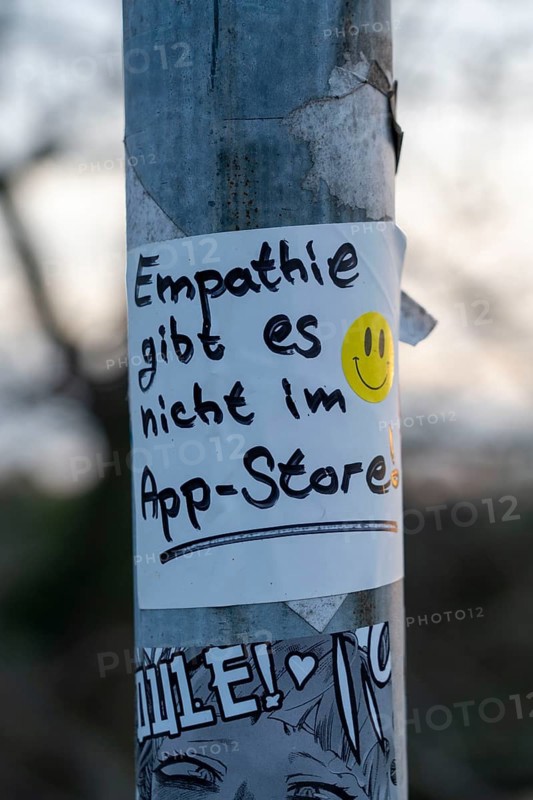 Empathie
gibt es
nicht im
App-Store!
PHOTO12